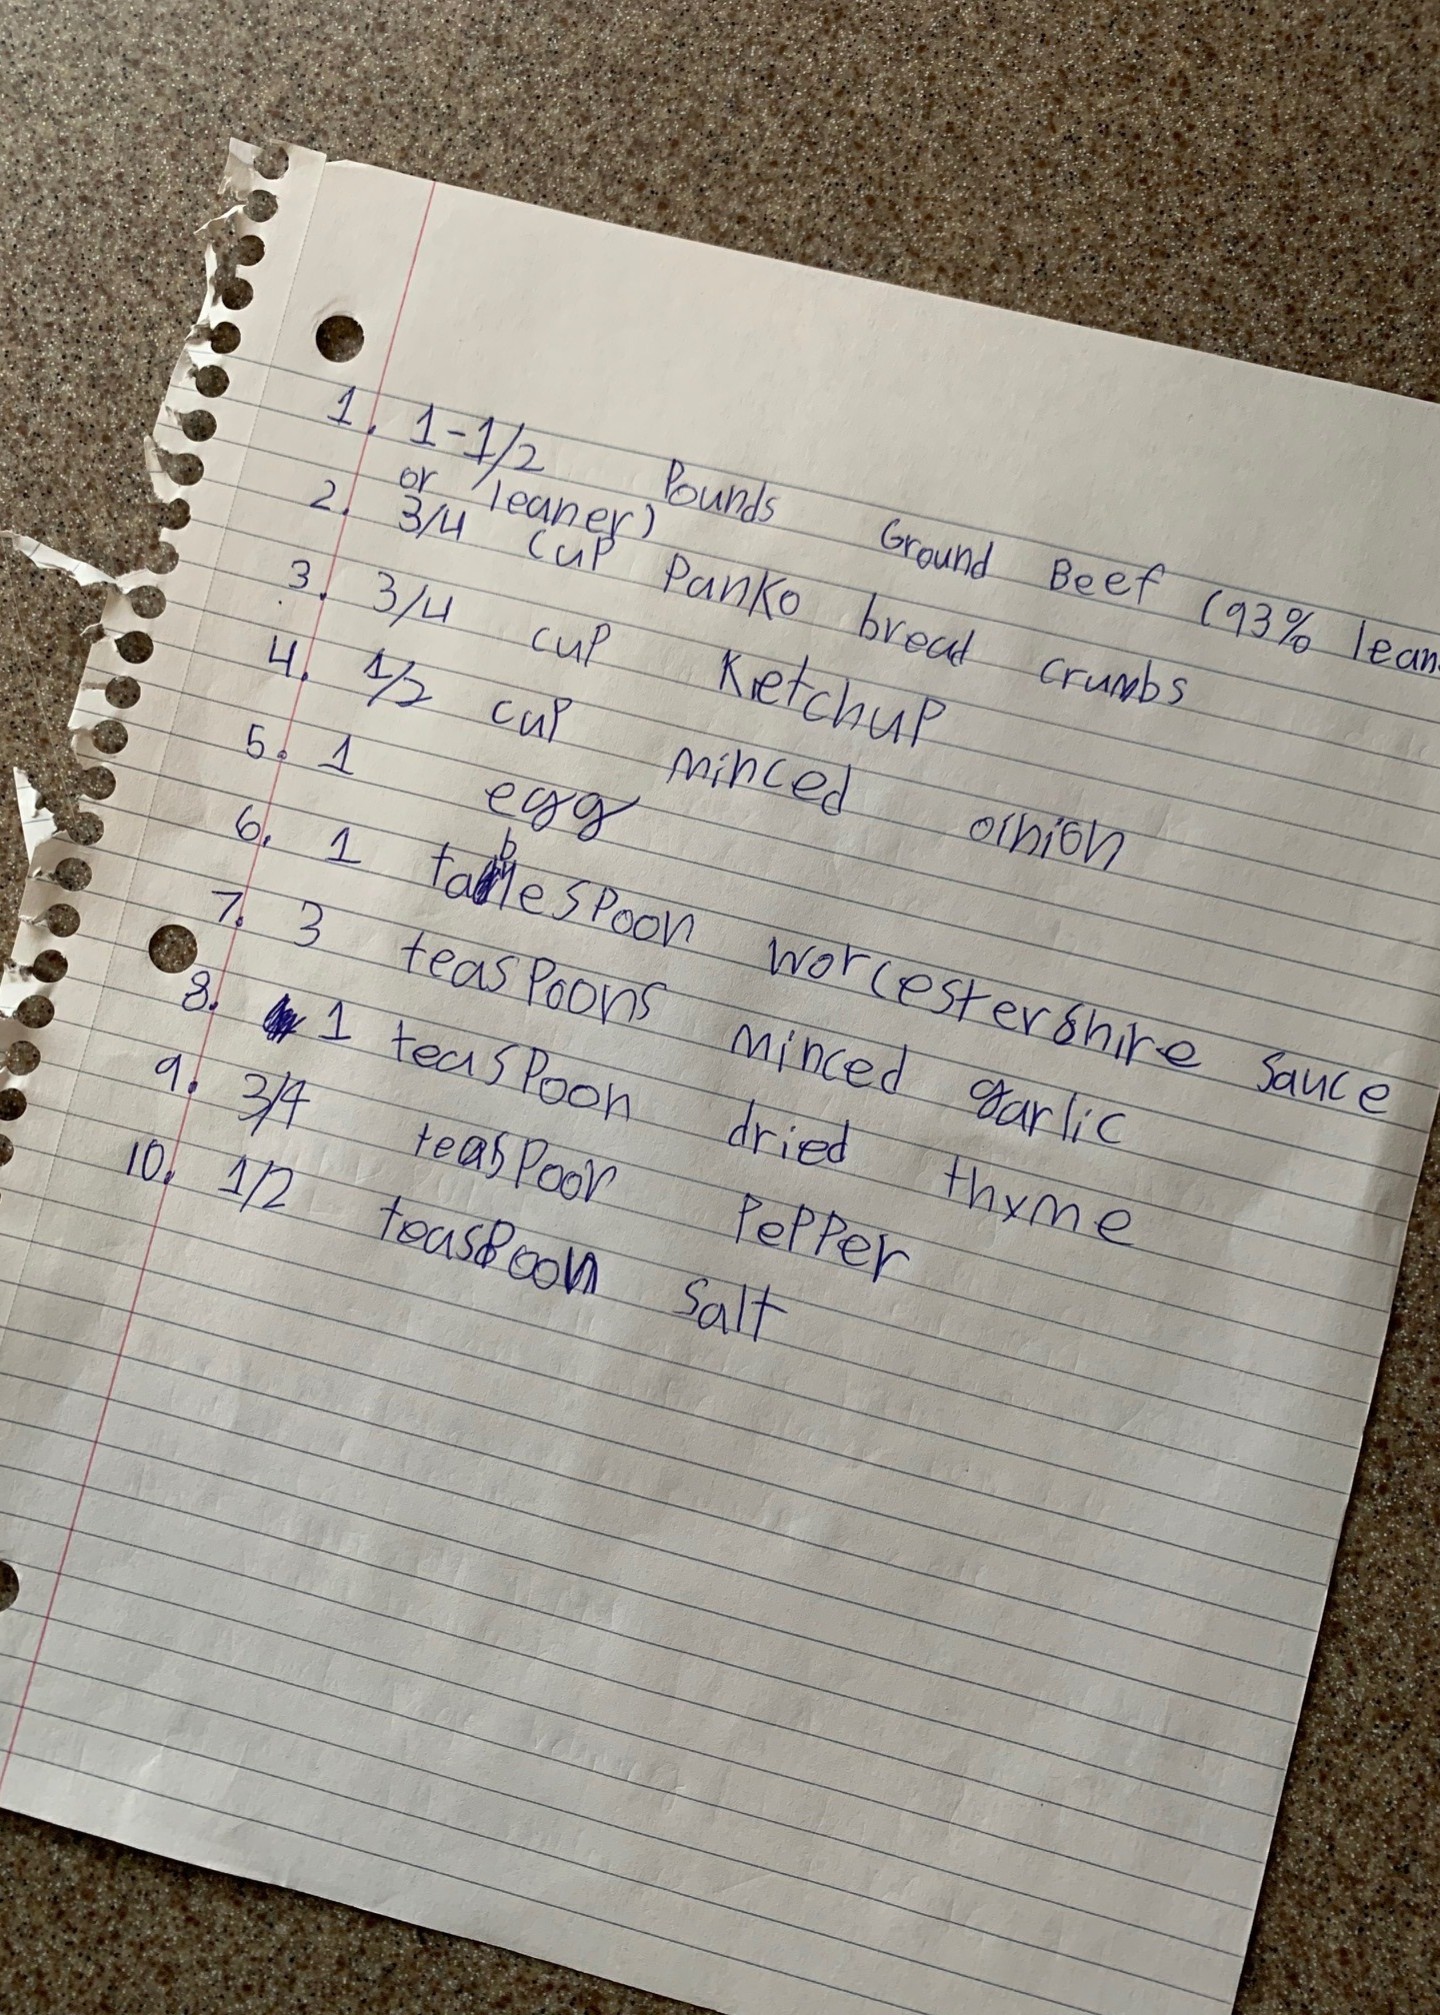 1. 1-1/2 Pounds Ground Beef (93% lean
or leaner)
2. 3/4 cup Panko bread crumbs
3. 3/4 cup Ketchup
4. 1/2 cup minced onion
5. 1 egg
6. 1 tablespoon worcestershire sauce
7. 3 teaspoons minced garlic
8. 1 teaspoon dried thyme
9. 3/4 teaspoon PePPer
10. 1/2 teaspoon Salt